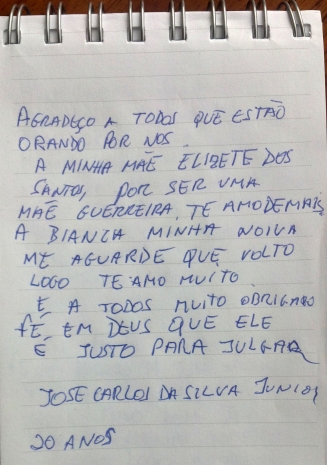 AGRADEÇO A TODOS QUE ESTÃO
ORANDO POR NOS.
A MINHA MÃE ELIZETE DOS
SANTOS, POR SER UMA
MÃE GUERREIRA, TE AMO DEMAIS
A BIANCA MINHA NOIVA
ME AGUARDE QUE VOLTO
LOGO TE AMO MUITO.
E A TODOS MUITO OBRIGADO
FÉ EM DEUS QUE ELE
É JUSTO PARA JULGAR
JOSE CARLOS DA SILVA JUNIOR
20 ANOS